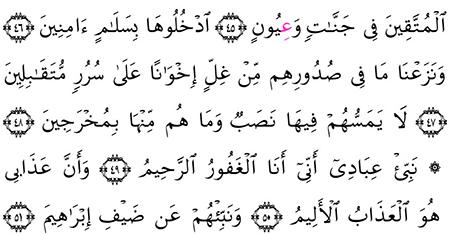 ٱلْمُتَّقِينَ فِى جَنَّـٰتٍ وَعِيُونٍ ﴿٤٥﴾ ٱدْخُلُوهَا بِسَلَـٰمٍ ءَامِنِينَ ﴿٤٦﴾
وَنَزَعْنَا مَا فِى صُدُورِهِم مِّنْ غِلٍّ إِخْوَٰنًا عَلَىٰ سُرُرٍ مُّتَقَـٰبِلِينَ
﴿٤٧﴾ لَا يَمَسُّهُمْ فِيهَا نَصَبٌ وَمَا هُم مِّنْهَا بِمُخْرَجِينَ ﴿٤٨﴾
۞ نَبِّئْ عِبَادِىٓ أَنِّىٓ أَنَا ٱلْغَفُورُ ٱلرَّحِيمُ ﴿٤٩﴾ وَأَنَّ عَذَابِى
هُوَ ٱلْعَذَابُ ٱلْأَلِيمُ ﴿٥٠﴾ وَنَبِّئْهُمْ عَن ضَيْفِ إِبْرَٰهِيمَ ﴿٥١﴾